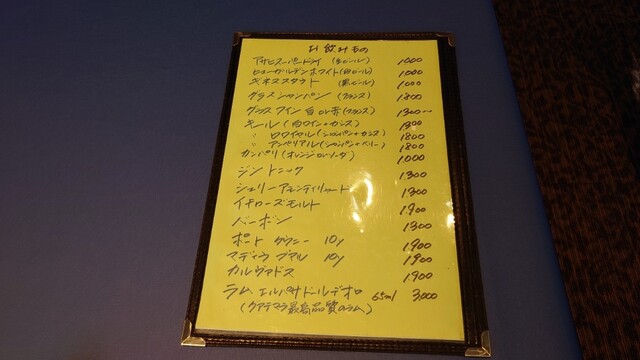 お飲みもの
アサヒスーパードライ (生ビール) 1000
ヒューガルデンホワイト (白ビール) 1000
ギネススタウト (黒ビール) 1000
グラスシャンパン (フランス) 1800
グラスワイン 白 or 赤 (フランス) 1300〜
キール (白ワイン+カシス) 1300
〃 ロワイヤル (シャンパン+カシス) 1800
〃 アンペリアル (シャンパン+ベリー) 1800
カンパリ (オレンジ or ソーダ) 1000
ジントニック 1300
シェリーアモンティリャード 1300
イチローズモルト 1900
バーボン 1300
ポート タウニー 10y 1900
マディラ ブアル 10y 1900
カルヴァドス 1900
ラム エルパサドールデオロ 65ml 3,000
(グアテマラ最高品質のラム)